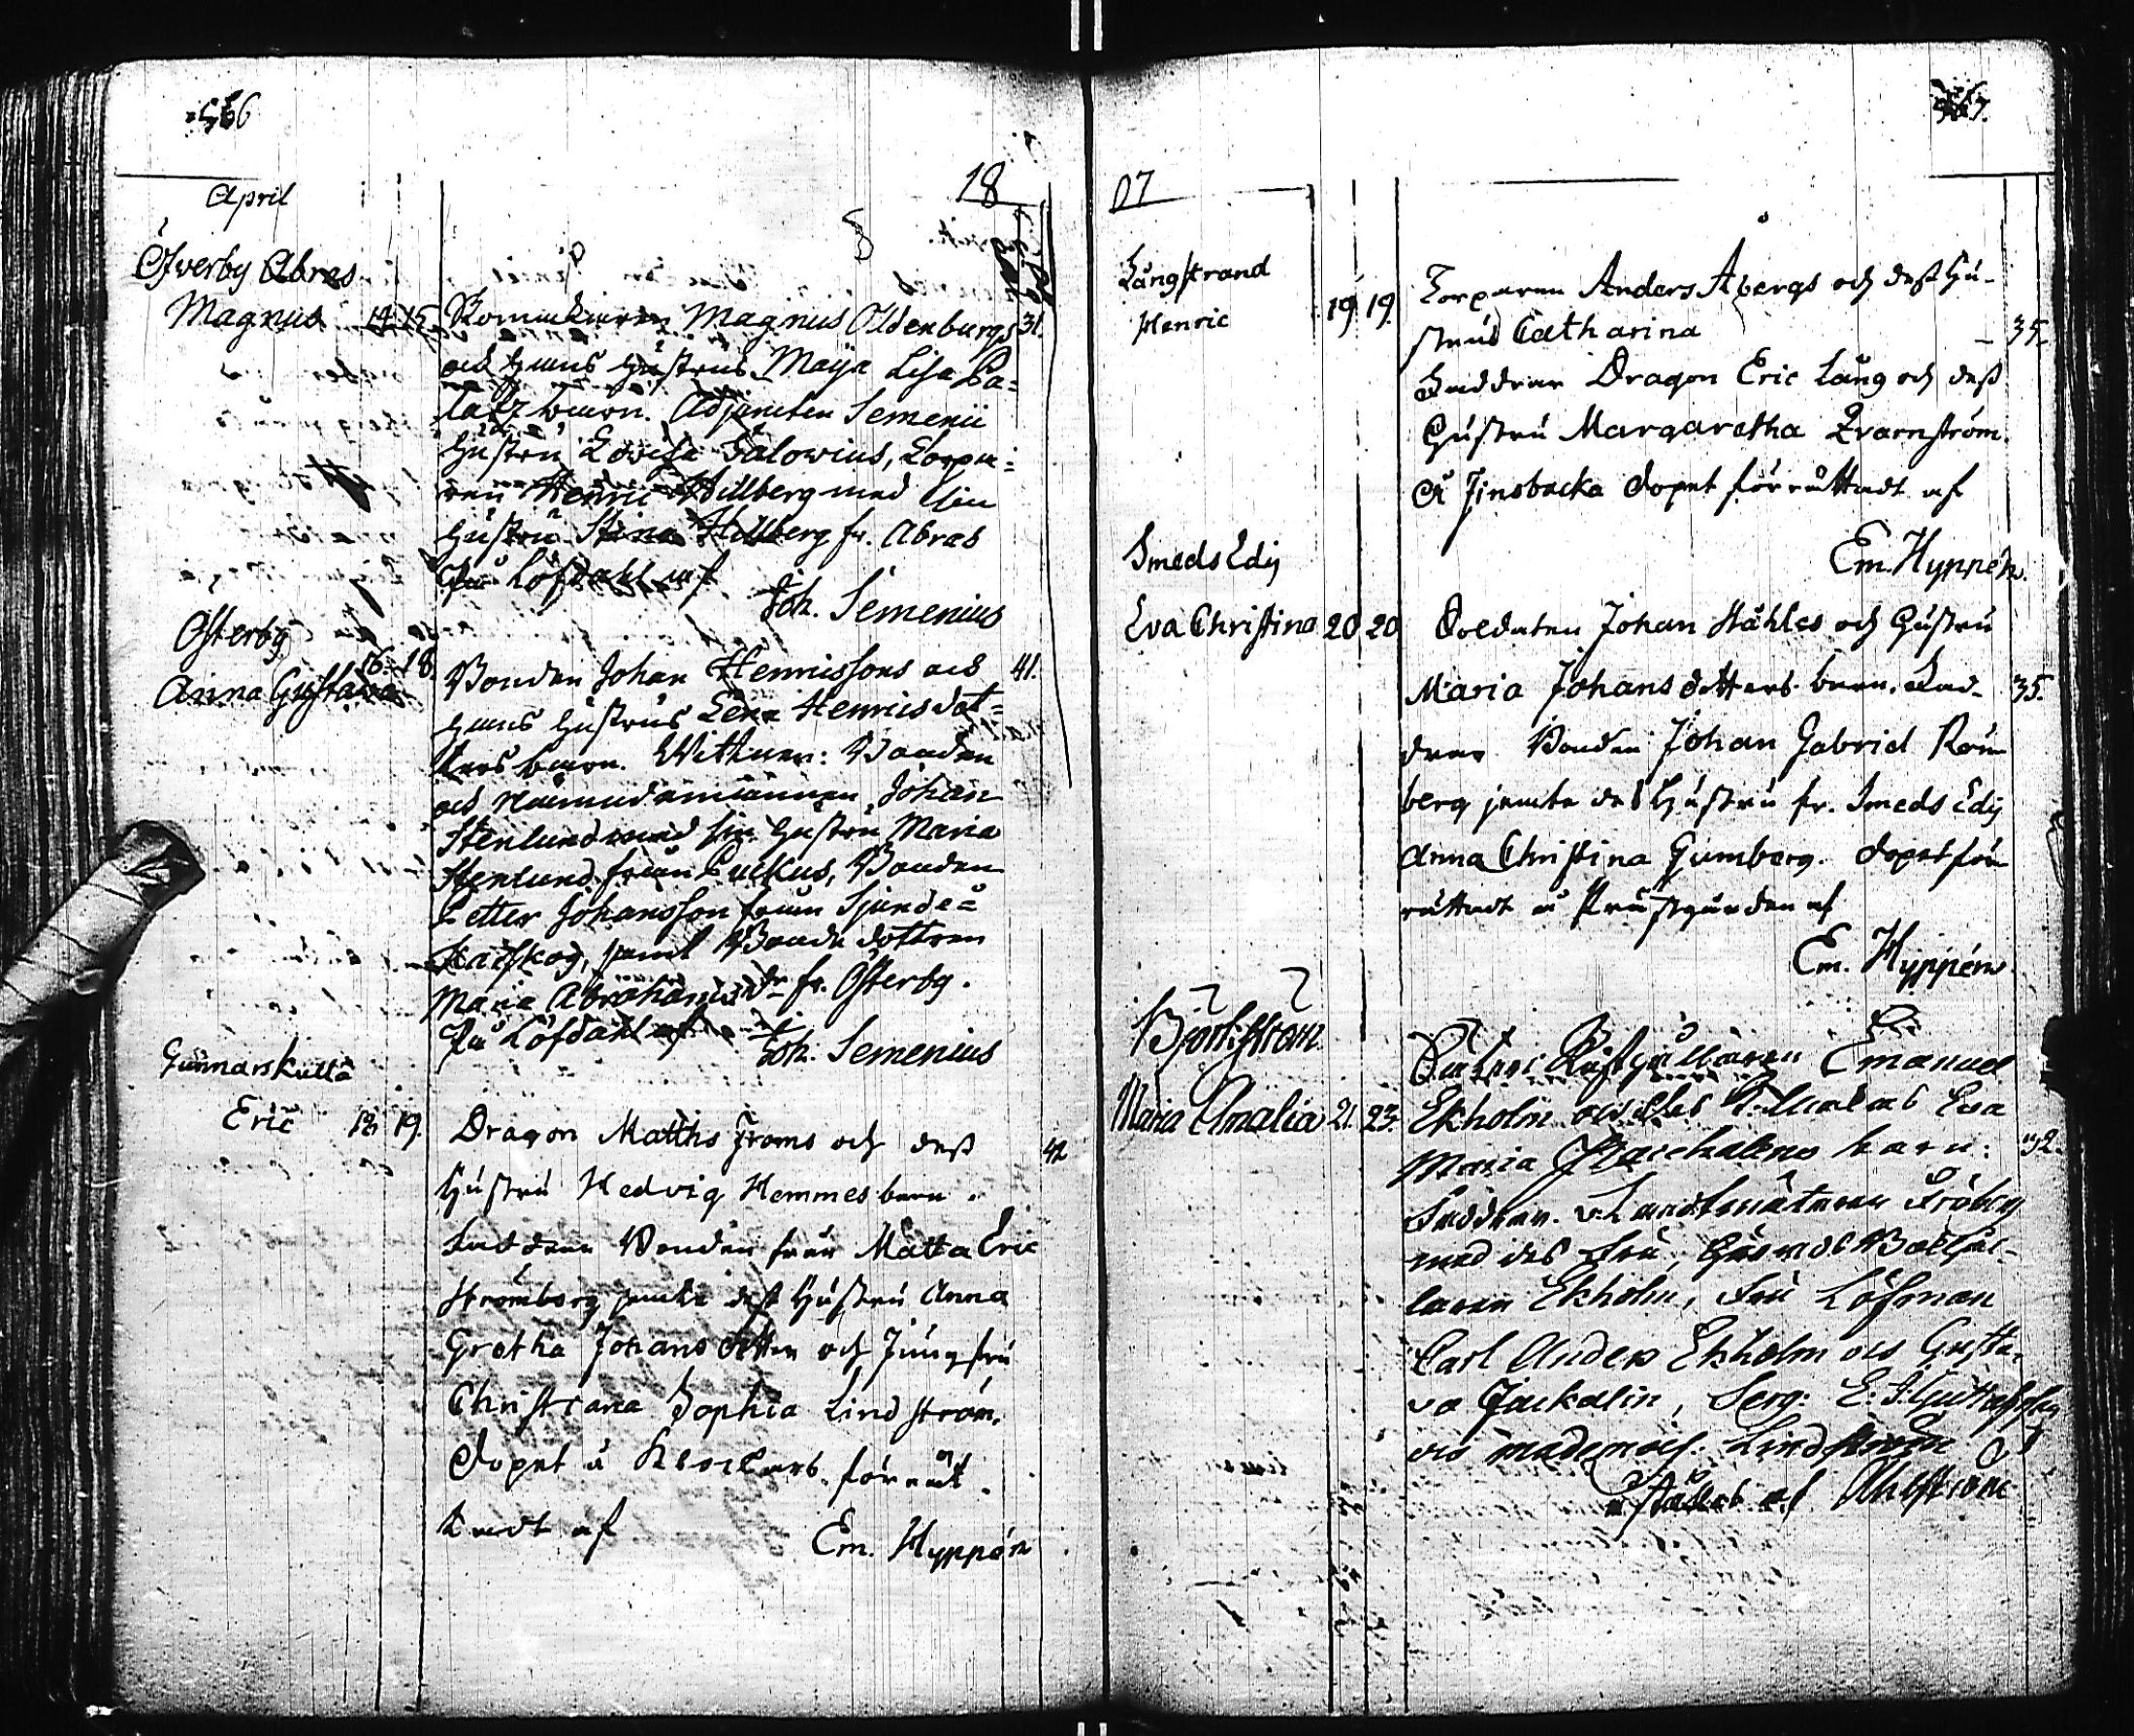 566
18
April
Öfverby Abras
Magnus 14 15 Magnus Oldenburgs 31.
och hans hustrus Maija Lisa Pa-
barn. Adjuncten Semenii
hustru Lovisa Falowius, Torpa-
ren Henric Hillberg med sin
hustru Stina Hillberg fr. Abras
På Löfdahl af
Joh. Semenius
Österby
Anna Gustava 16. 18. Bonden Johan Henricssons och 41.
hans hustrus Lena Henricsdot-
ters barn. Wittnen: Bonden
och Nämndemannen Johan
Stenlund med sin hustru Maria
Stenlund från Puckus, Bonden
Petter Johansson från Sjundeå
Karskog, samt Bonde dottren
Maria Abrahamsdr fr. Österby.
På Löfdahl af Joh. Semenius
Gunnarskulla
Eric 19. Dragon Matths Froms och dess 42
Hustru Hedvig Hemmes barn.
Faddrar Bonden från Mätta Eric
Strömberg jemte dess Hustru Anna
Gretha Johansdotter och Jungfru
Christiana Sophia Lindström.
Dopet å förrät-
tadt af Em. Hyppén
567.
07
Långstrand
Henric 19 19. Torparen Anders Åbergs och dess Hu-
strus Catharina 35.
Faddrar Dragon Eric Lång och dess
Hustru Margaretha Qvarnström.
å Finsbacka dopet förrättadt af
Em. Hyppén.
Smeds Edij
Eva Christina 20 20 Soldaten Johan Ståhles och Hustru
Maria Johansdotters barn. Fad- 35.
drar Bonden Johan Gabriel Röm
berg jemte des Hustru fr. Smeds Edij
Anna Christina Gumberg. Dopet för
rättadt å Prästgården af
Em. Hyppén
Björkström
Maria Amalia 21. 23. Rusthållaren Emanuel
Ekholm och des Eva
Maria barn: 32.
Faddrar. Landtmätaren Fröberg
med des Fru, Bokhål-
laren Ekholm, Fru Löfman
Carl Anders Ekholm och Gusta-
va Jackalin, Serg:
och mademois. Lindström
af